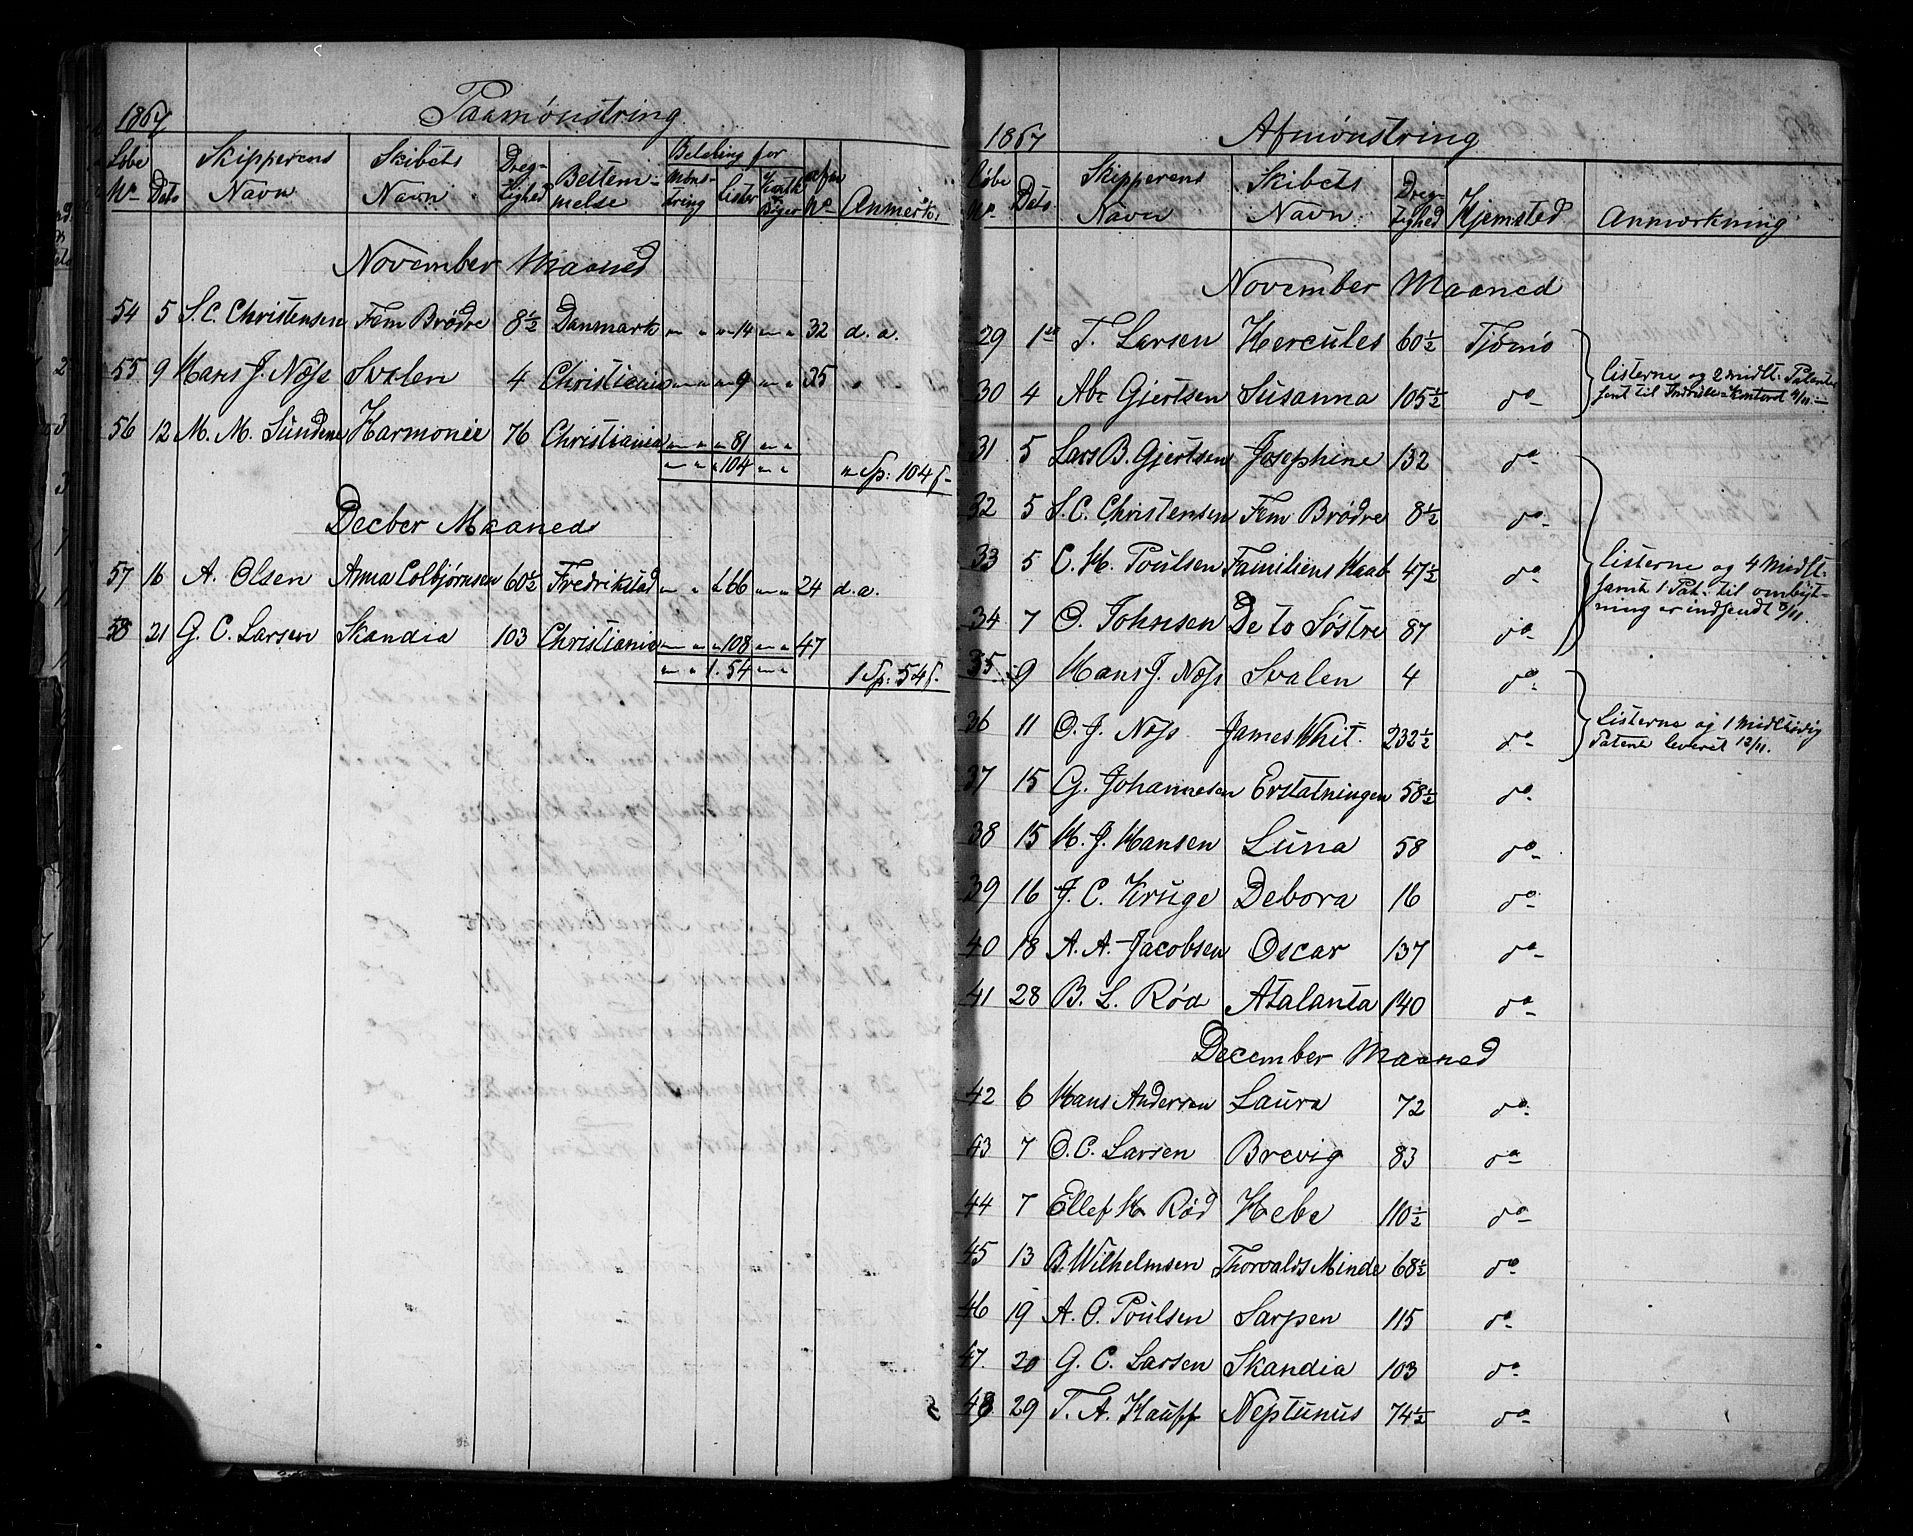 1867 Paamønstring
Løbe No Dato Skipperens Navn Skibets Navn Dreg-tighed Bestem-melse Betaling for Møns-tring Lister No Anmerk.
November Maaned
54 5 S. C. Christensen Fem Brødre 8½ Danmark " " " 14 " " 32 d. a.
55 9 Hans J. Næss Svalen 4 Christiania " " " 9 " " 35 "
56 12 M. M. Sundene Harmonie 76 Christiania " " " 81 " "
" " " 104 " " " Sp: 104 ſ-
Decber Maaned
57 16 A. Olsen Anna Colbjørnsen 60½ Fredrikstad " " 66 " " 24 d. a.
58 21 G. C. Larsen Skandia 103 Christiania " " " 108 " " 47
" " 1. 54 " " 1 Sp: 54 ſ.
1867 Afmønstring
Løbe No Dato Skipperens Navn Skibets Navn Dreg-tighed Hjemsted Anmærkning
November Maaned
29 1 T. Larsen Hercules 60½ Tjømø
Listerne og 2 midlt. Patenter
30 4 Abr Gjertsen Susanna 105½ do
31 5 Lars B. Gjertsen Josephine 132 do
32 5 S. C. Christensen Fem Brødre 8½ do
33 5 C. H. Poulsen Familiens Haab 47½ do
Listerne og 4 Midlt.
samt 1 Pat. til ombyt-
ning er indsendt 8/11.
34 7 O. Johnsen De to Søstre 87 do
35 9 Hans J. Næss Svalen 4 do
36 11 O. J. Næss James Whit. 232½ do
Listerne og 1 Midltidig
Patent leveret 12/11.
37 15 G. Johannesen Erstatningen 58½ do
38 15 H. J. Hansen Luna 58 do
39 16 J. C. Kruge Debora 16 do
40 18 A. A. Jacobsen Oscar 137 do
41 28 B. L. Rød Atalanta 140 do
December Maaned
42 6 Hans Andersen Laura 72 do
43 7 O. C. Larsen Brevig 83 do
44 7 Ellef H Rød Hebe 110½ do
45 13 B. Wilhelmsen Thorvalds Minde 68½ do
46 19 A. O. Poulsen Sarpen 115 do
47. 20 G. C. Larsen Skandia 103 do
48 29 T. A. Hauff Neptunus 74½ do